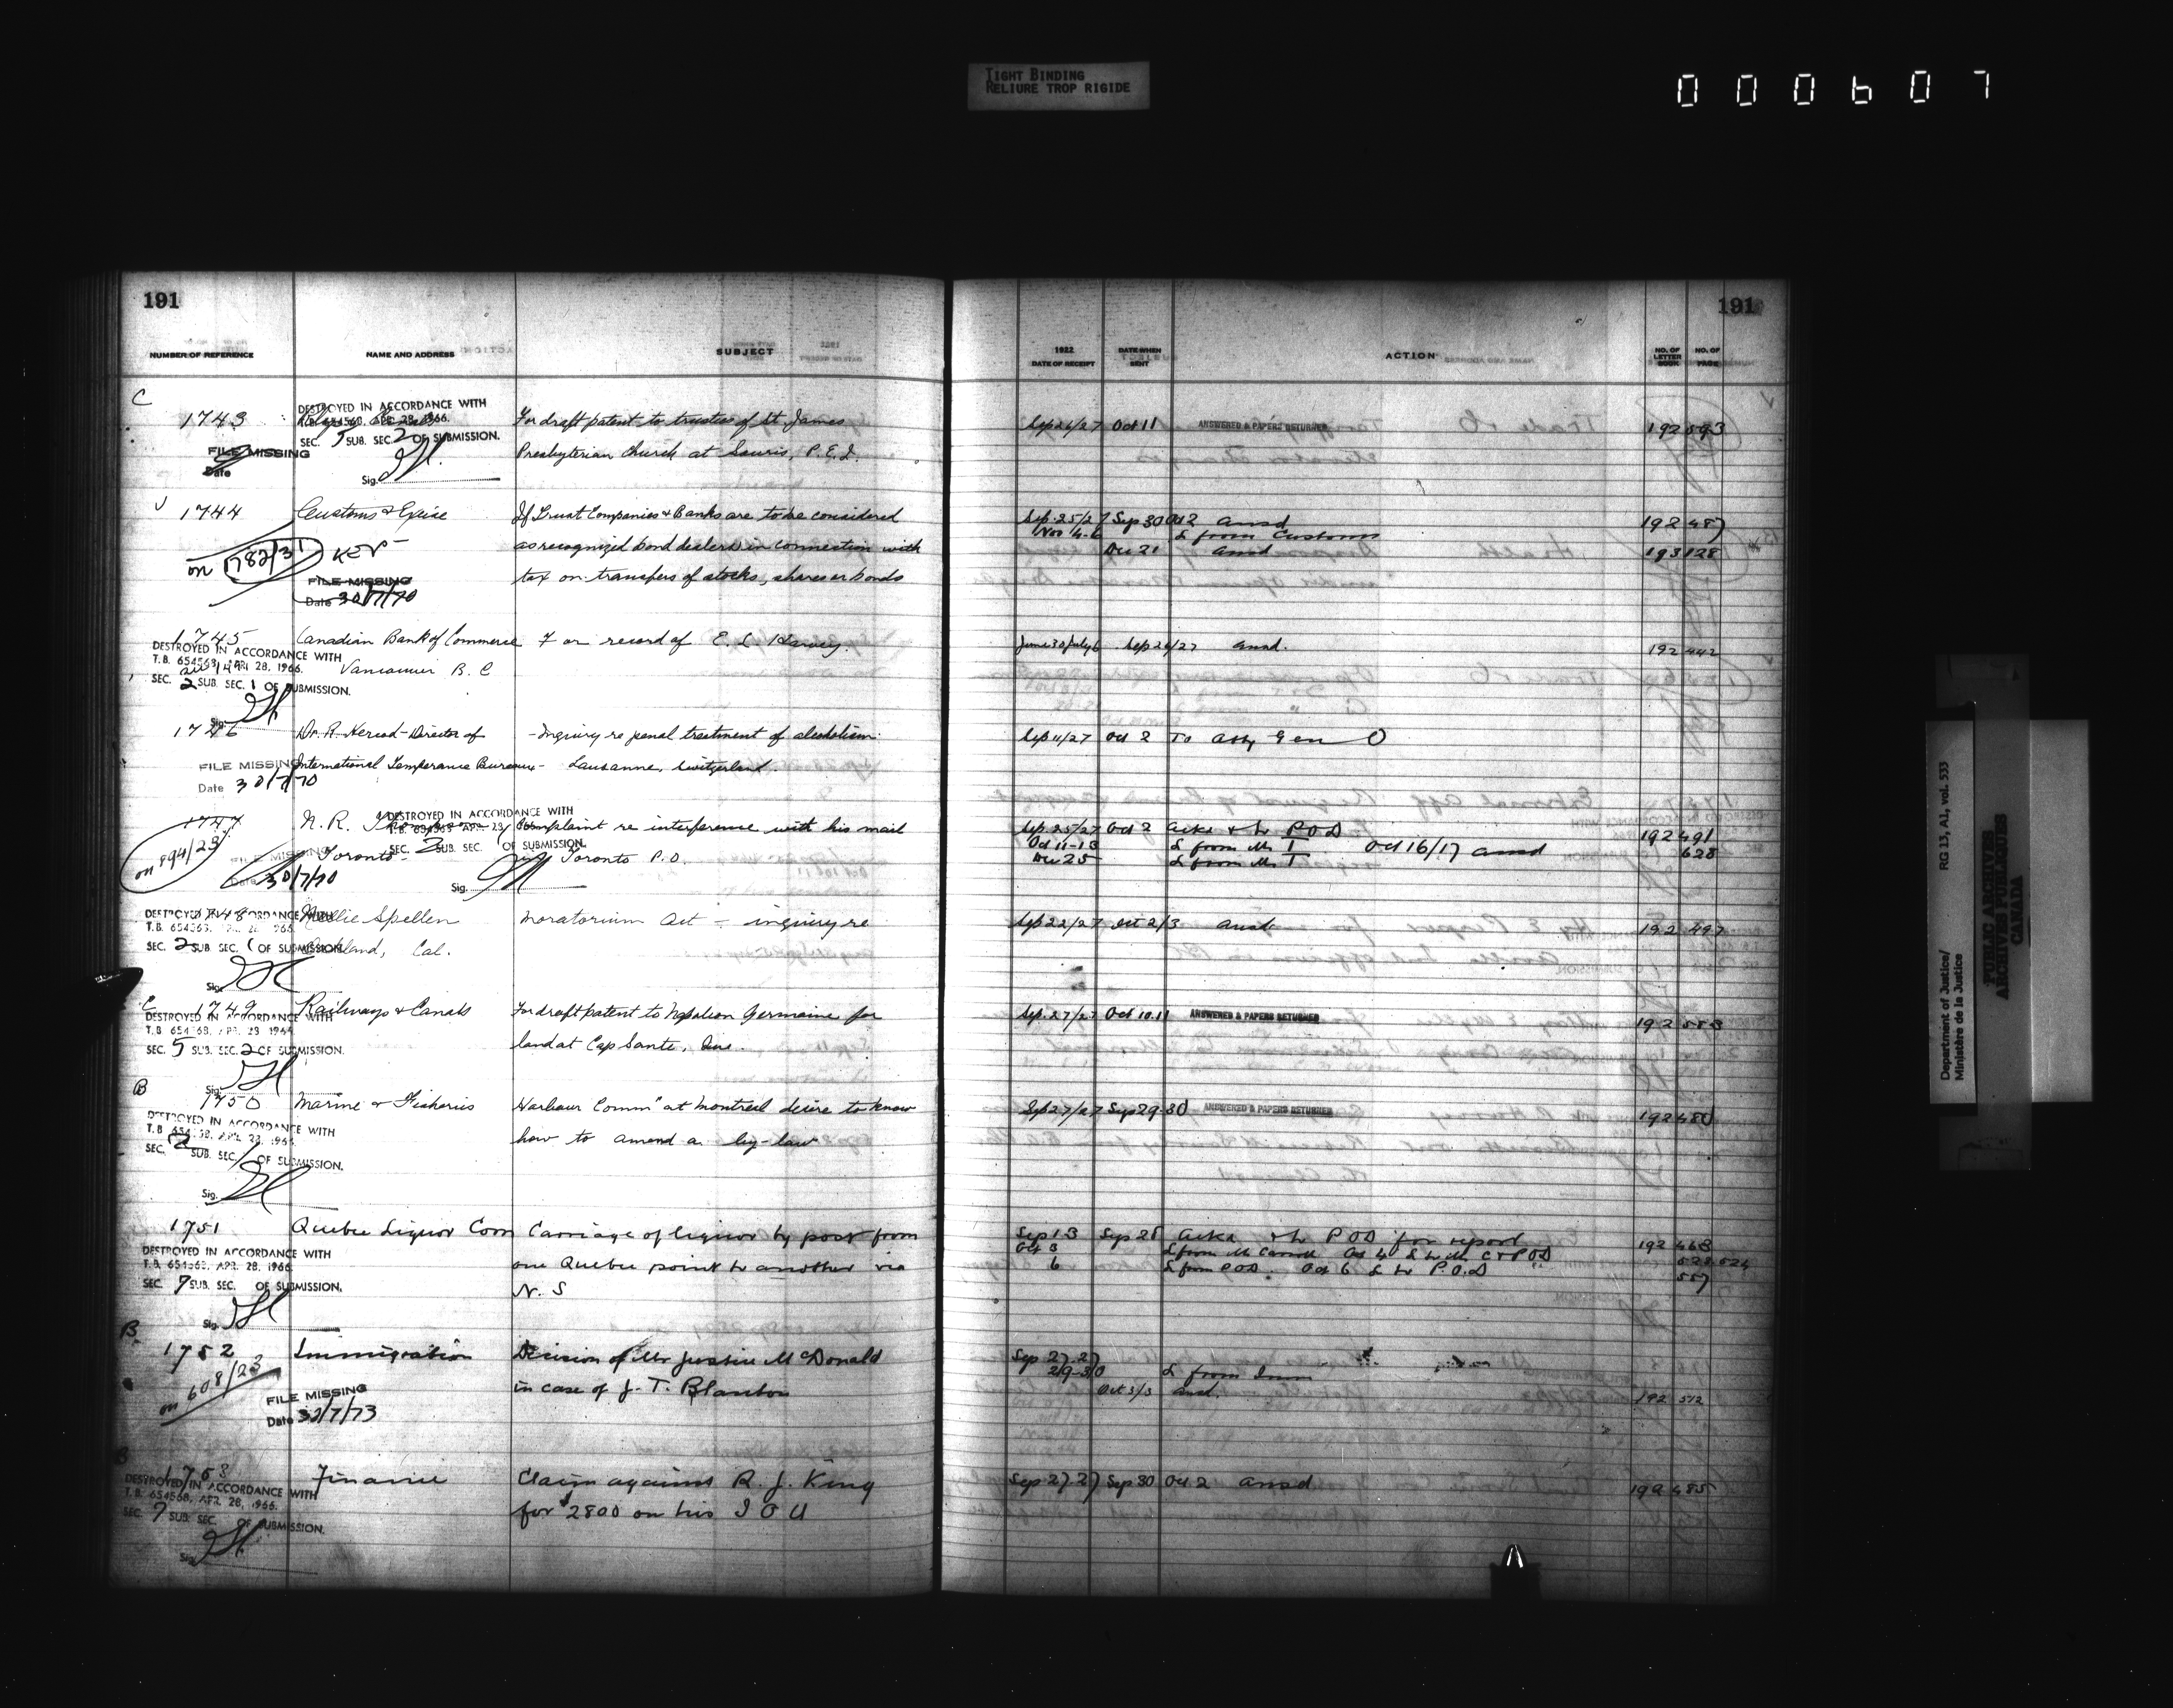 TIGHT BINDING
RELIURE TROP RIGIDE
000607
191
NUMBER OF REFERENCE NAME AND ADDRESS SUBJECT
C
1743 For draft patent to trustees of St James
DESTROYED IN ACCORDANCE WITH
T.B. 654568, APR. 28, 1966.
SEC. 5 SUB. SEC. 2 OF SUBMISSION.
FILE MISSING Presbyterian Church at Souris, P.E.I.
Date
Sig.
1744 Customs & Excise If Trust Companies & Banks are to be considered
on 1782/31 KEV as recognized bond dealers in connection with
FILE MISSING tax on transfers of stocks, shares or bonds
Date 30/7/70
1745 Canadian Bank of Commerce For record of E. L. Harvey.
DESTROYED IN ACCORDANCE WITH
T.B. 654568, APR. 28, 1966.
Vancouver B. C
SEC. 2 SUB. SEC. 1 OF SUBMISSION.
Sig.
1746 Dr. R. Hercod - Director of - Inquiry re penal treatment of alcoholism.
FILE MISSING International Temperance Bureau - Lausanne, Switzerland.
Date 30/7/70
1747 N. R. Complaint re interference with his mail
DESTROYED IN ACCORDANCE WITH
T.B. 654568 APR. 28, 1966.
SEC. 2 SUB. SEC. 1 OF SUBMISSION.
on 894/23 Toronto - Toronto P.O.
FILE MISSING
Date 30/7/70
Sig.
1748 Nellie Spellen Moratorium Act - inquiry re
DESTROYED IN ACCORDANCE WITH
T.B. 654568, APR. 28, 1966
SEC. 2 SUB. SEC. 1 OF SUBMISSION.
Oakland, Cal.
Sig.
C
1749 Railways & Canals For draft patent to Napoleon Germaine for
DESTROYED IN ACCORDANCE WITH
T.B. 654568, APR. 28, 1966
SEC. 5 SUB. SEC. 2 OF SUBMISSION.
land at Cap Sante, Que.
Sig.
B
1750 Marine & Fisheries Harbour Comm" at Montreal desire to know
DESTROYED IN ACCORDANCE WITH
T.B. 654568, APR. 28, 1966
SEC. 2 SUB. SEC. 1 OF SUBMISSION.
how to amend a by-law
Sig.
1751 Quebec Liquor Com Carriage of liquor by post from
DESTROYED IN ACCORDANCE WITH
T.B. 654568, APR. 28, 1966
one Quebec point to another via
SEC. 7 SUB. SEC. OF SUBMISSION.
N. S
Sig.
B
1752 Immigration Decision of Mr Justice McDonald
on 608/23 in case of J. T. Blanton
FILE MISSING
Date 30/7/73
B
1753 Finance Claim against R. J. King
DESTROYED IN ACCORDANCE WITH
T.B. 654568, APR. 28, 1966.
for $2800 on his I O U
SEC. 7 SUB. SEC. OF SUBMISSION.
Sig.
191
1922
DATE OF RECEIPT DATE WHEN SENT ACTION NO. OF LETTER BOOK NO. OF PAGE
Sep 26/27 Oct 11 ANSWERED & PAPERS RETURNED 192 593
Sep. 25/27 Sep 30 Oct 2 ansd 192 487
Nov 4-6 L from Customs
Dec 21 ansd 193 128
June 30/July 6 Sep 26/27 ansd. 192 442
Sep 11/27 Oct 2 To Atty Gen O
Sep 25/27 Oct 2 Ackd & L to P.O.D 192 491
Oct 11-13 L from Mr T Oct 16/17 ansd 628
Dec 25 L from Mr T
Sep 22/27 Oct 2/3 ansd 192 497
Sep. 27/27 Oct 10.11 ANSWERED & PAPERS RETURNED 192 583
Sep 27/27 Sep 29-30 ANSWERED & PAPERS RETURNED 192 480
Sep 13 Sep 28 Ackd & L to P O D for report 192 468
Oct 3 L from Mr Carroll Oct 4 L to Mr C & P O D 523 524
6 L from P O D. Oct 6 L to P.O.D 557
Sep 27.27
29-30 L from Imm
Oct 3/3 ansd. 192 512
Sep 27.27 Sep 30 Oct 2 ansd 192 485
Department of Justice/
Ministère de la Justice
RG 13, A1, vol. 533
PUBLIC ARCHIVES
ARCHIVES PUBLIQUES
CANADA